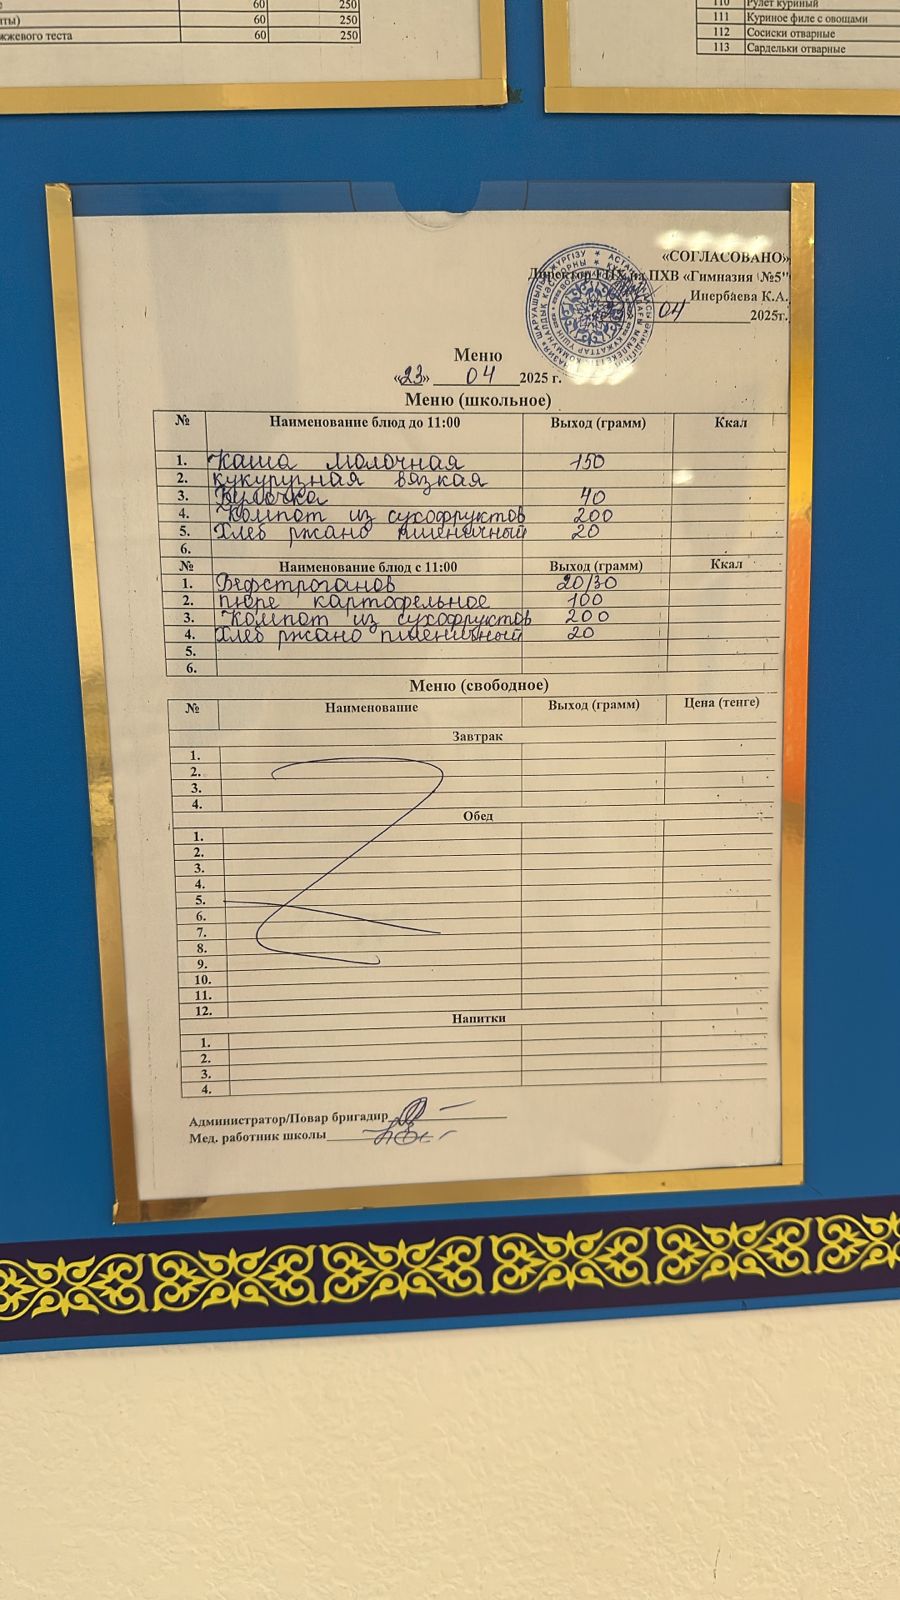 60 250
ты) 60 250
жжевого теста 60 250
110 Рулет куриный
111 Куриное филе с овощами
112 Сосиски отварные
113 Сардельки отварные
«СОГЛАСОВАНО»
Директор ГКП на ПХВ «Гимназия №5"
Инербаева К.А.
04 2025г.
Меню
«23» 04 2025 г.
Меню (школьное)
№ Наименование блюд до 11:00 Выход (грамм) Ккал
1. Каша молочная 150
2. кукурузная вязкая
3. Булочка 40
4. Компот из сухофруктов 200
5. Хлеб ржано пшеничный 20
6.
№ Наименование блюд с 11:00 Выход (грамм) Ккал
1. Бефстроганов 20/30
2. пюре картофельное 100
3. Компот из сухофруктов 200
4. Хлеб ржано пшеничный 20
5.
6.
Меню (свободное)
№ Наименование Выход (грамм) Цена (тенге)
Завтрак
1.
2.
3.
4.
Обед
1.
2.
3.
4.
5.
6.
7.
8.
9.
10.
11.
12.
Напитки
1.
2.
3.
4.
Администратор/Повар бригадир
Мед. работник школы